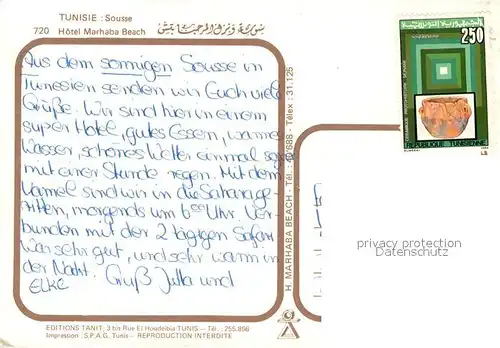 TUNISIE : Sousse
720 Hôtel Marhaba Beach
سوسة ونزل المرحبا بيتش
Aus dem sonnigen Sousse in
Tunesien senden wir Euch viele
Grüße. Wir sind hier in einem
super Hotel, gutes Essen, warmes
Wasser, schönes Wetter einmal sogar
mit einer Stunde regen. Mit dem
Kamel sind wir in die Sahara ge-
ritten, morgends um 6 Uhr. Ver-
bunden mit der 2 tägigen Safari
war sehr gut, und sehr warm in
der Nacht. Gruß Jutta und
Elke
H. MARHABA BEACH - Tél : - Télex : 31.125
EDITIONS TANIT, 3 bis Rue El Houdeibia TUNIS - Tél. : 255.896
Impression : S.P.A.G. Tunis - REPRODUCTION INTERDITE
250
REPUBLIQUE TUNISIENNE
privacy protection
Datenschutz